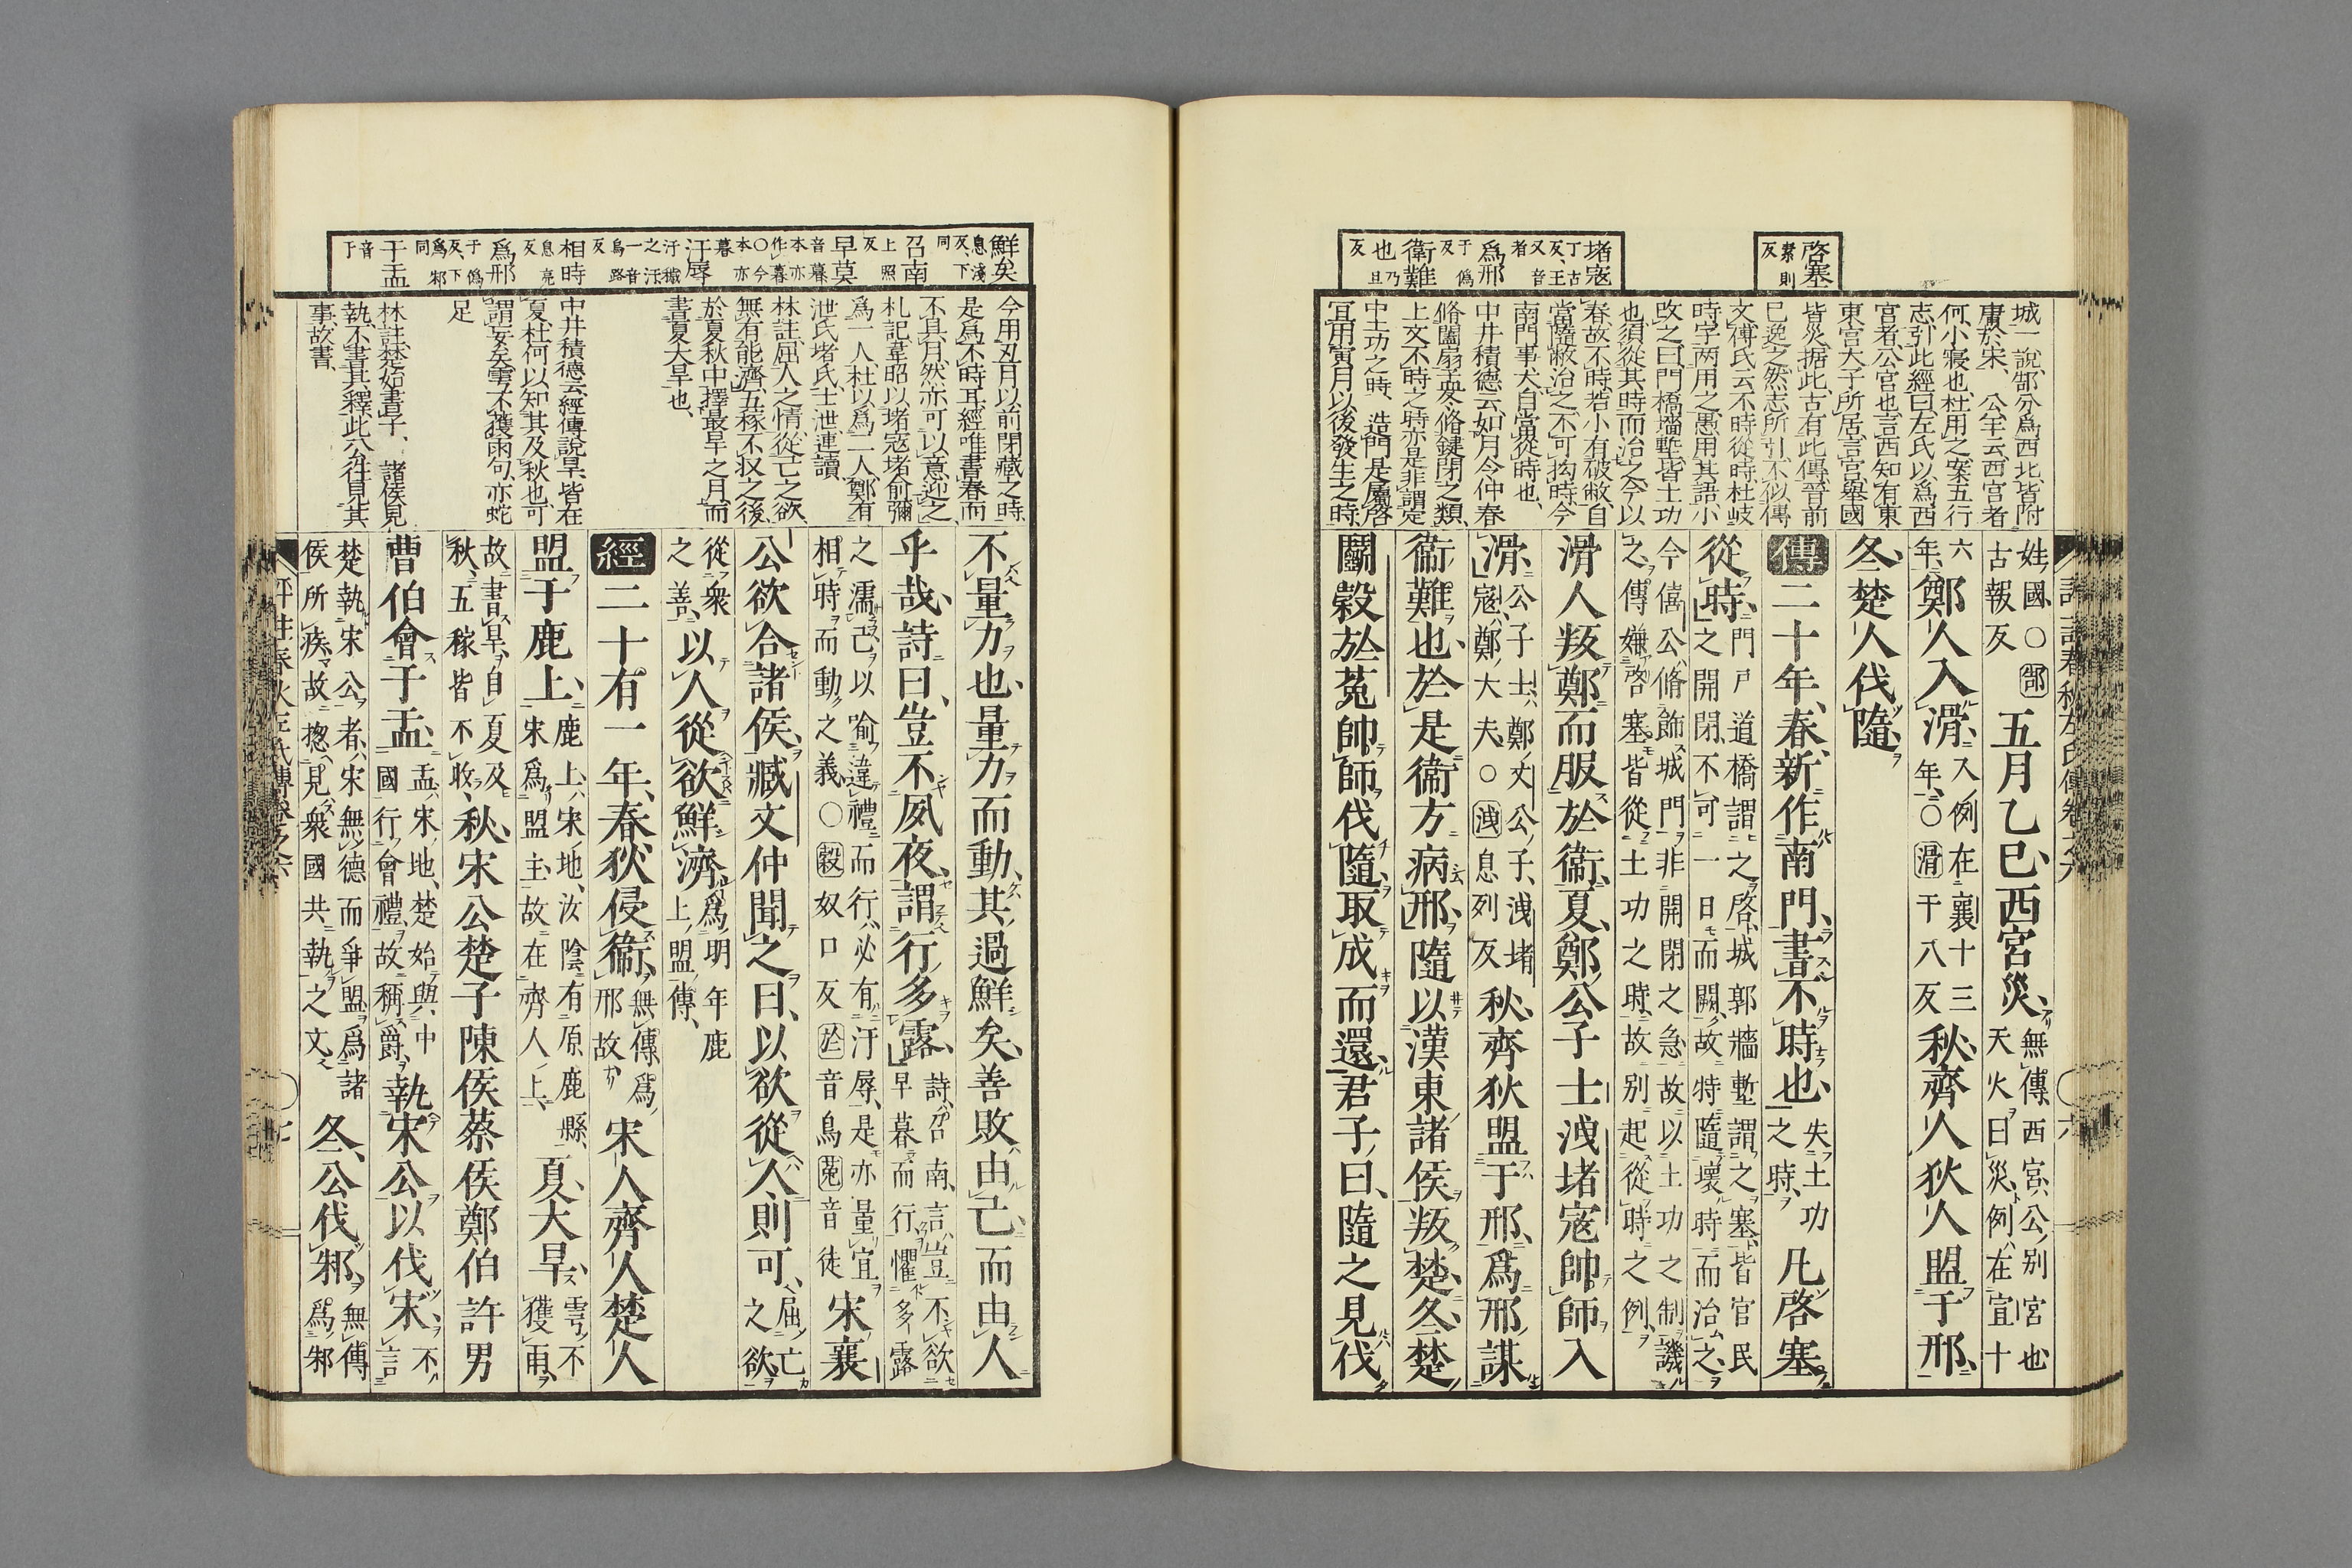 啓塞
素則
反
堵宼
丁古
反、王
又音
者
爲邢
于僞
反
衛難
乃旦
也
反
城一說、郜分爲西北、皆附
庸於宋、公羊云、西宮者
何、小寢也、杜用之、案五行
志、引此經曰、左氏以爲、西
宮者、公宮也、言西知有東
東宮大子所居、言宮擧國
皆災、据此、古有此傳、晉前
巳逸之、然志所引、不似傳
文、傅氏云、不時從時、杜岐
時字两用之、愚用其語、小
改之曰、門橋墻塹、皆土功
也、須從其時而治之、今以
春故不時、若小有破敝、自
當隨敝治之、不可拘時、今
南門事大、自當從時也、
中井積德云、如月令仲春
脩闔扇、孟冬脩鍵閉之類、
上文不時之時、亦是非謂定
中土功之時、造門是屬啓
宜用寅月以後發生之時
姓國、○郜
古報反
五月乙巳、西宮災、
無傳、西宮、公別宮也、
天火曰災、例在宣十
六
年、
鄭人入滑、
入例在襄十三
年、○滑于八反
秋、齊人狄人盟于邢、
冬、楚人伐隨、
傳二十年、春、新作南門、書不時也、
失土功
之時、
凡啓塞
從時、
門戸道橋謂之啓、城郭牆塹謂之塞、皆官民
之開閉、不可一日而闕、故特隨壞時而治之、
今僖公脩飾城門、非開閉之急、故以土功之制譏
之、傳嫌啓塞皆從土功之時、故別起從時之例、
滑人叛鄭而服於衛、夏、鄭公子士洩堵宼帥師入
滑、
公子士、鄭文公子、洩堵
宼、鄭大夫、○洩息列反
秋、齊狄盟于邢、爲邢謀
衛難也、於是衛方病邢、隨以漢東諸侯叛楚、冬、楚
鬭穀於菟帥師伐隨、取成而還、君子曰、隨之見伐、
鮮矣
息淺
反、下
同
召南
上照
反
早莫
音暮
本亦
作暮
○今
本亦
暮
汙辱
汙穢
之汙
一音
烏路
反
相時
息亮
反
爲邢
于僞
反、下
爲邾
同
于盂
音
于
今用丑月以前閉藏之時
是爲不時耳、經唯書春而
不具月、然亦可以意迎之、
札記、韋昭以堵宼堵俞彌
爲一人、杜以爲二人、鄭有
泄氏堵氏、士泄連讀、
林註、屈人之情、從己之欲、
無有能濟、五稼不収之後、
於夏秋中擇最旱之月而
書夏大旱也、
中井積德云、經傳說旱、皆在
夏、杜何以知其及秋也、可
謂妄矣、雩不獲雨句、亦蛇
足
林註、楚始書子、諸侯見
執、不書其釋、此公往見其
事、故書、
不量力也、量力而動、其過鮮矣、善敗由己、而由人
乎哉、詩曰、豈不夙夜、謂行多露、
詩召南、言豈不欲
早暮而行、懼多露
之濡己、以喻違禮而行、必有汙辱、是亦量宜
相時而動之義、○穀奴口反、於音烏、菟音徒
宋襄
公欲合諸侯、臧文仲聞之曰、以欲從人則可、
屈亡
之欲、
從衆
之善、
以人從欲鮮濟、
爲明年鹿
上盟傳、
經二十有一年、春、狄侵衛、
無傳、爲
邢故
宋人齊人楚人
盟于鹿上、
鹿上、宋地、汝陰有原鹿縣、
宋爲盟主、故在齊人上、
夏、大旱、
雩不
獲雨、
故書旱、自夏及
秋、五稼皆不収、
秋、宋公楚子陳侯蔡侯鄭伯許男
曹伯會于盂、
盂、宋地、楚始與中
國行會禮、故稱爵、
執宋公以伐宋、
不
言
楚執宋公者、宋無德而爭盟、爲諸
侯所疾、故揔見衆國共執之文、
冬、公伐邾、
無傳
爲邾